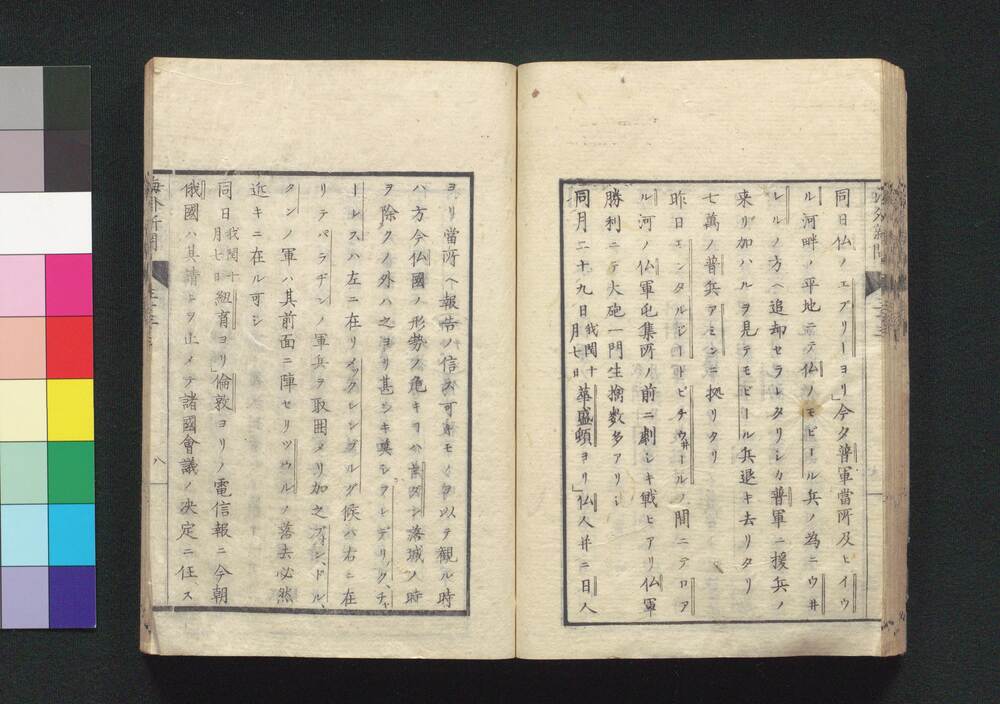 同日仏ノエブリーヨリ」今夕普軍當所及ヒイウ
ル河畔ノ平地ニテ仏ノモビール兵ノ為ニウ井
レルノ方ヘ追却セラレタリシカ普軍ニ援兵ノ
来リ加ハルヲ見テモビール兵退キ去リタリ
七萬ノ普兵アミンニ拠リタリ
昨日エンタルシートトピチウ井ールノ間ニテロア
ル河ノ仏軍屯集所ノ前ニ劇シキ戦ヒアリ仏軍
勝利ニテ大砲一門生擒数多アリシ
同月二十九日我閏十月七日華盛頓ヨリ」仏人并ニ日人
ヨリ當所ヘ報告ノ信ス可キモノヲ以テ観ル時
ハ方今仏國ノ形勢ノ危キハ落城ノ時
ヲ除クノ外ハ之ヨリ甚シキ莫シフレデリック、チャ
ーレスハ左ニ在リメックレンブルグ候ハ右ニ在
リテパラヂンノ軍兵ヲ取囲メリ加之フォン、ドル、
タンノ軍ハ其前面ニ陣セリツウルノ落去必然
近キニ在ル可シ
同日我閏十月七日紐育ヨリ」倫敦ヨリノ電信報ニ今朝
俄國ハ其請ヒヲ止メテ諸國會議ノ决定ニ任ス
海外新聞
八